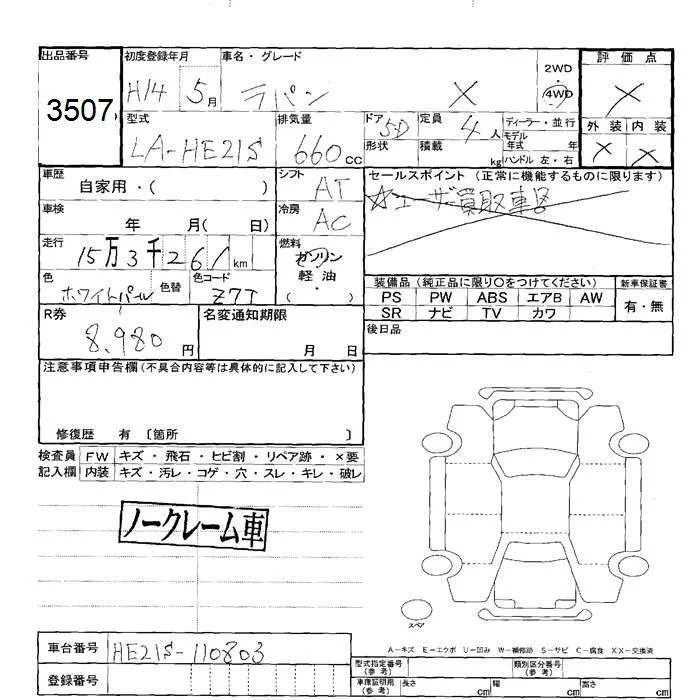 出品番号 初度登録年月 車名・グレード 2WD 評価点
3507 H14 5月 ラパン X 4WD X
外装 内装
X X
型式 排気量 ドア 5D 定員 4人 ディーラー・並行
LA-HE21S 660cc 形状 積載 kg モデル年式 年
ハンドル 左・右
車歴 シフト セールスポイント (正常に機能するものに限ります)
自家用・( ) AT ☆ユーザー買取車
車検 冷房
年 月( 日) AC
走行 燃料
15万3千261km ガソリン
軽油・
( )
色 色替 色コード 装備品 (純正品に限り○をつけてください) 新車保証書
ホワイトパール Z7T PS PW ABS エアB AW 有・無
SR ナビ TV カワ
R券 名変通知期限 後日品
8,980円 月 日
注意事項申告欄(不具合内容等は具体的に記入して下さい)
修復歴 有 〔箇所 〕
検査員 FW キズ・飛石・ヒビ割・リペア跡・×要
記入欄 内装 キズ・汚レ・コゲ・穴・スレ・キレ・破レ
ノークレーム車
スペア
A-キズ E-エクボ U-凹み W-補修跡 S-サビ C-腐食 XX-交換済
車台番号 HE21S-110803
型式指定番号(参考) 類別区分番号(参考)
登録番号 車庫証明用(参考) 長さ cm 幅 cm 高さ cm